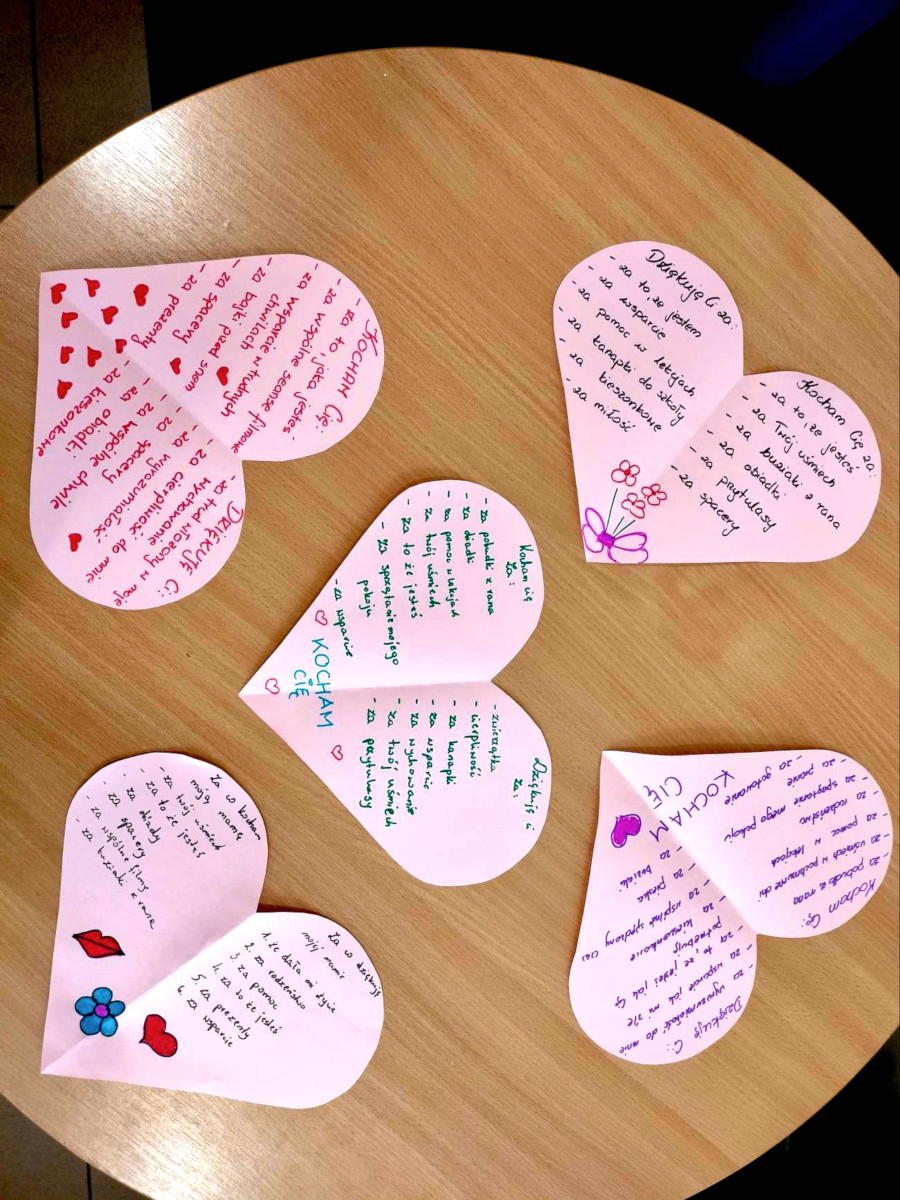 Kocham Cię:
- za to, jaka jesteś
- za wspólne seanse filmowe
- za wsparcie w trudnych
chwilach
- za bajki przed snem
- za spacery
- za prezenty
Dziękuję Ci:
- za trud włożony w moje
wychowanie
- za cierpliwość do mnie
- za wyrozumiałość
- za spacery
- za wspólne chwile
- za obiadki
- za kieszonkowe
Dziękuję Ci za:
- za to, że jestem
- za wsparcie
- za pomoc w lekcjach
- za kanapki do szkoły
- za kieszonkowe
- za miłość
Kocham Cię za:
- za to, że jesteś
- za Twój uśmiech
- za buziaki z rana
- za obiadki
- za przytulasy
- za spacery
Kocham cię
za:
- za pobudki z rana
- za obiadki
- za pomoc w lekcjach
- za twój uśmiech
- za to że jesteś
- za sprzątanie mojego
pokoju
- za wsparcie
KOCHAM
CIĘ
Dziękuję ci
za:
- zwierzątka
- cierpliwość
- za kanapki
- za wsparcie
- za wychowanie
- za twój uśmiech
- za przytulasy
Za co kocham
moją mamę
- za twój uśmiech
- za to że jesteś
- za obiady
- za spacery
- za wspólne filmy
- za buziaki z rana
Za co dziękuję
mojej mamie
1. że dała mi życie
2. za rodzeństwo
3. za pomoc
4. za to że jesteś
5. za prezenty
6. za wsparcie
Kocham Cię:
- za pobudki z rana
- za uśmiech w pochmurne dni
- za pomoc w lekcjach
- za rodzeństwo
- za sprzątanie mego pokoju
- za pranie
- za gotowanie
KOCHAM
CIĘ
Dziękuję Ci:
- za wyrozumiałość do mnie
- za wsparcie jak mi źle
- za to, że jesteś jak Cię
potrzebuję
- za kieszonkowe
- za wspólnie spędzony czas
- za pieska
- za buziaki